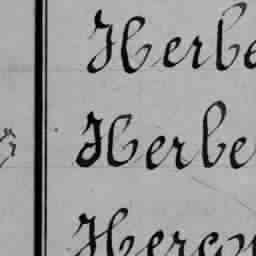 Herbe
Herbe
Hercu